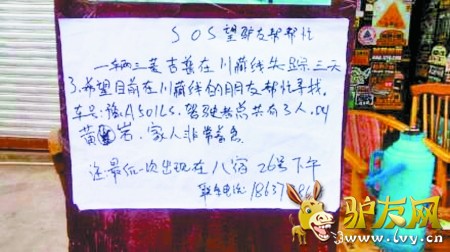 SOS望驴友帮帮忙
一辆三菱吉普在川藏线失踪三天
了,希望目前在川藏线的朋友帮忙寻找。
车号:豫A501LS.驾驶 共有3人,叫
黄 岩.家人非常着急
这最后一次出现在八宿26号下午
联系电话:18637 86
驴友网
www.lvy.cn